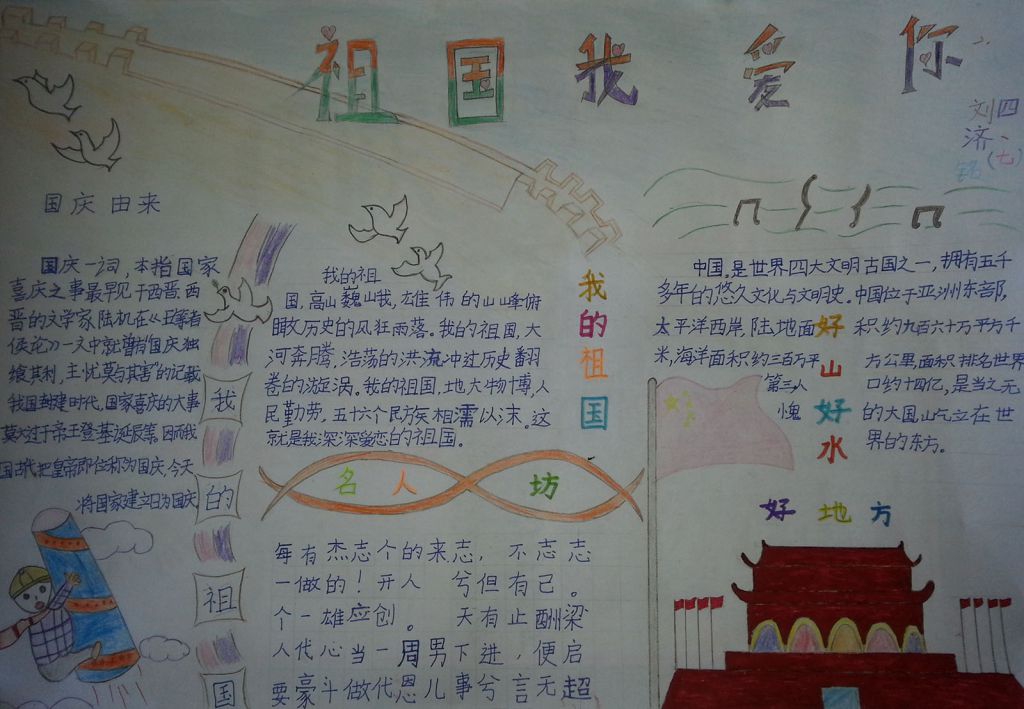 祖国我爱你
四、(七)
刘济铭
国庆由来
国庆一词,本指国家
喜庆之事最早见于西晋.西
晋的文学家陆机在《五等者
侯论》一文中就曾有国庆独
飨其利,主忧莫与其害"的记载
我国封建时代,国家喜庆的大事
莫大过于帝王登基诞辰等.因而我
国古代把皇帝即位称为国庆,今天
将国家建立日为国庆
我的祖国
我的祖
国,高山巍山我,雄伟的山山峰俯
瞰历史的风狂雨落。我的祖国,大
河奔腾,浩荡的洪流冲过历史翻
卷的旋涡。我的祖国,地大物博,人
民勤劳,五十六个民族相濡以沫。这
就是我深深爱恋的祖国。
我的祖国
名人坊
每有杰志个的来志,不志志
一做的!开人 兮但有己。
个一雄应创。 天有止酬梁
人代心当一周男下进,便启
要豪斗做代恩儿事兮言无超
中国,是世界四大文明古国之一,拥有五千
多年的悠久文化与文明史.中国位于亚洲东部,
太平洋西岸,陆地面 积约九百六十万平方千
米,海洋面积约三百万平 方公里,面积排名世界
第三人 口约十四亿,是当之无
愧 的大国,屹立在世
界的东方。
好山好水
好地方